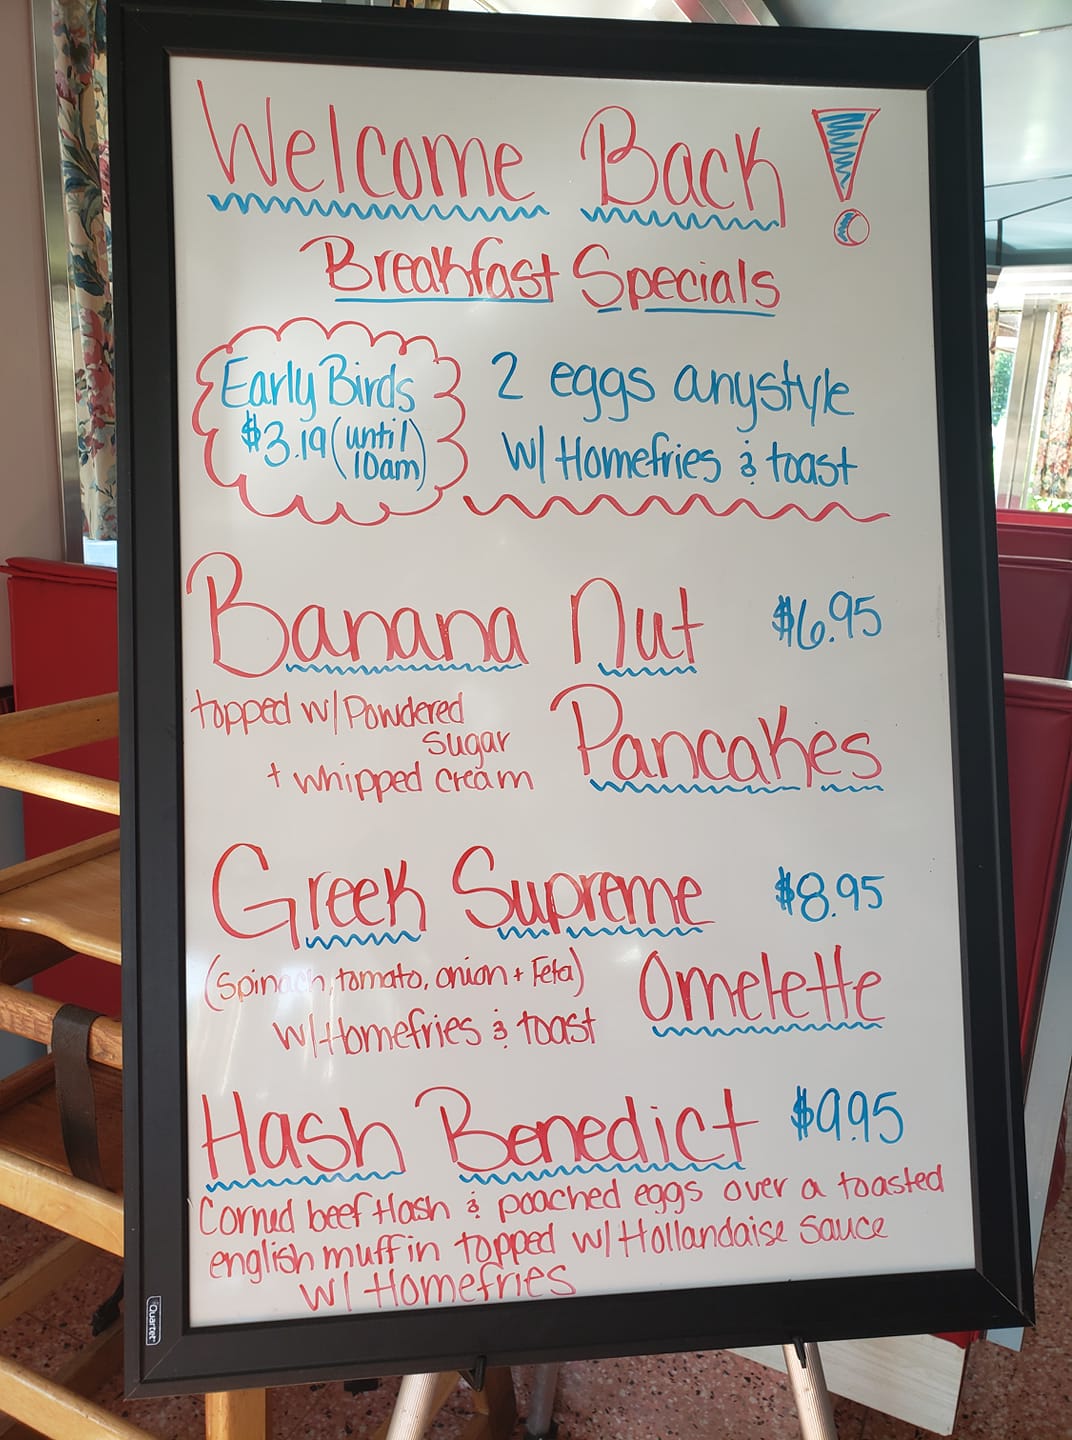 Welcome Back!
Breakfast Specials
Early Birds
$3.19 (until
10am)
2 eggs anystyle
w/ Homefries & toast
Banana Nut $6.95
Pancakes
topped w/ Powdered
sugar
+ whipped cream
Greek Supreme $8.95
Omelette
(spinach, tomato, onion + Feta)
w/ Homefries & toast
Hash Benedict $9.95
Corned beef Hash & poached eggs over a toasted
english muffin topped w/ Hollandaise sauce
w/ Homefries
Quartet